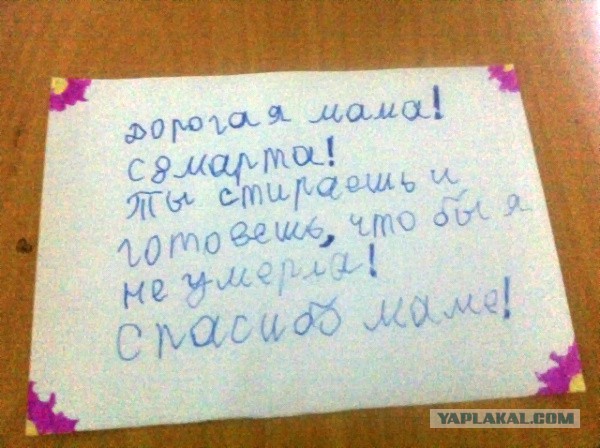 дорогая мама!
с 8марта!
Ты стираешь и
готовешь, что бы я
не умерла!
Спасибо маме!
YAPLAKAL.COM